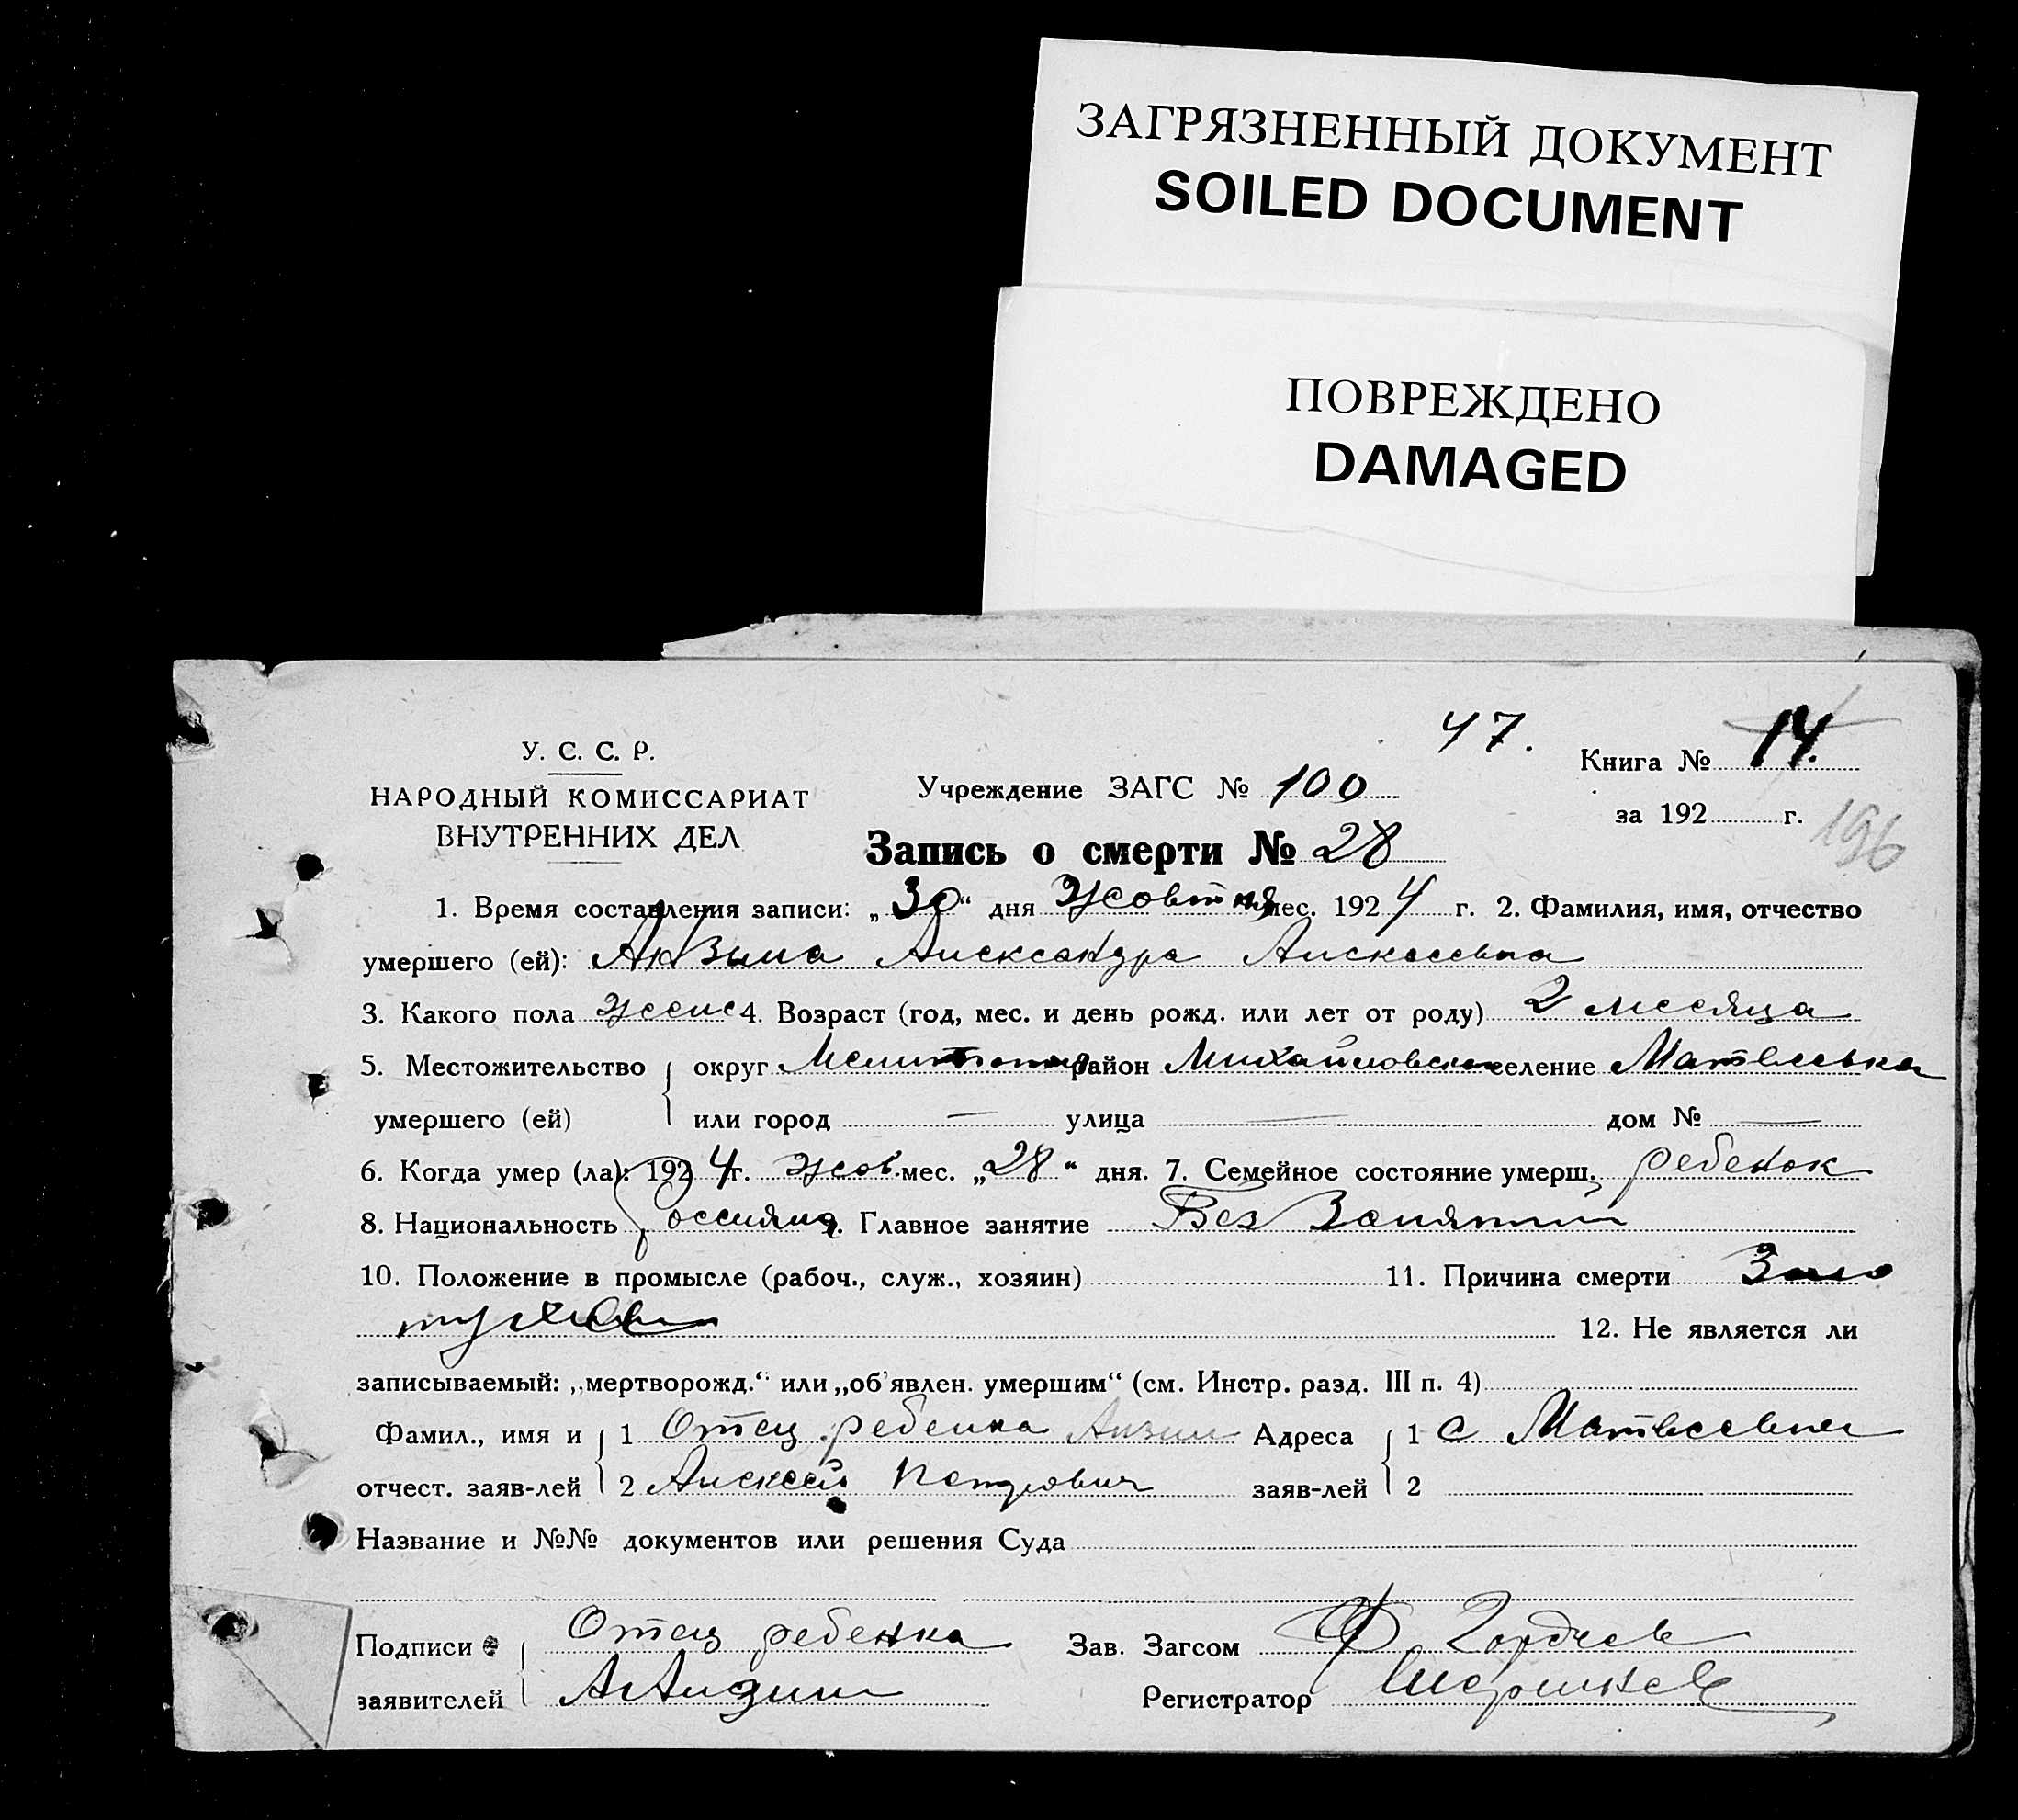 ЗАГРЯЗНЕННЫЙ ДОКУМЕНТ
SOILED DOCUMENT
ПОВРЕЖДЕНО
DAMAGED
47.
У. С. С. Р.
НАРОДНЫЙ КОМИССАРИАТ
ВНУТРЕННИХ ДЕЛ
Учреждение ЗАГС № 100
Книга № 14.
за 192 г.
196
Запись о смерти № 28
1. Время составления записи: „30“ дня Жовтня мес. 1924 г. 2. Фамилия, имя, отчество
умершего (ей): Александра Алексеевна
3. Какого пола женс 4. Возраст (год, мес. и день рожд. или лет от роду) 2 месяца
5. Местожительство округ район Михайловск селение
умершего (ей) или город — улица — дом № —
6. Когда умер (ла): 1924 г. жов. мес. „28“ дня. 7. Семейное состояние умерш. ребенок
8. Национальность 9. Главное занятие Без Занятий
10. Положение в промысле (рабоч., служ., хозяин) 11. Причина смерти
12. Не является ли
записываемый: „мертворожд.“ или „об'явлен. умершим“ (см. Инстр. разд. III п. 4)
Фамил., имя и 1 Отец ребенка Адреса 1 с Матвеевка
отчест. заяв-лей 2 Алексей Петрович заяв-лей 2
Название и №№ документов или решения Суда
Подписи Отец ребенка Зав. Загсом Ф Гордеев
заявителей Регистратор